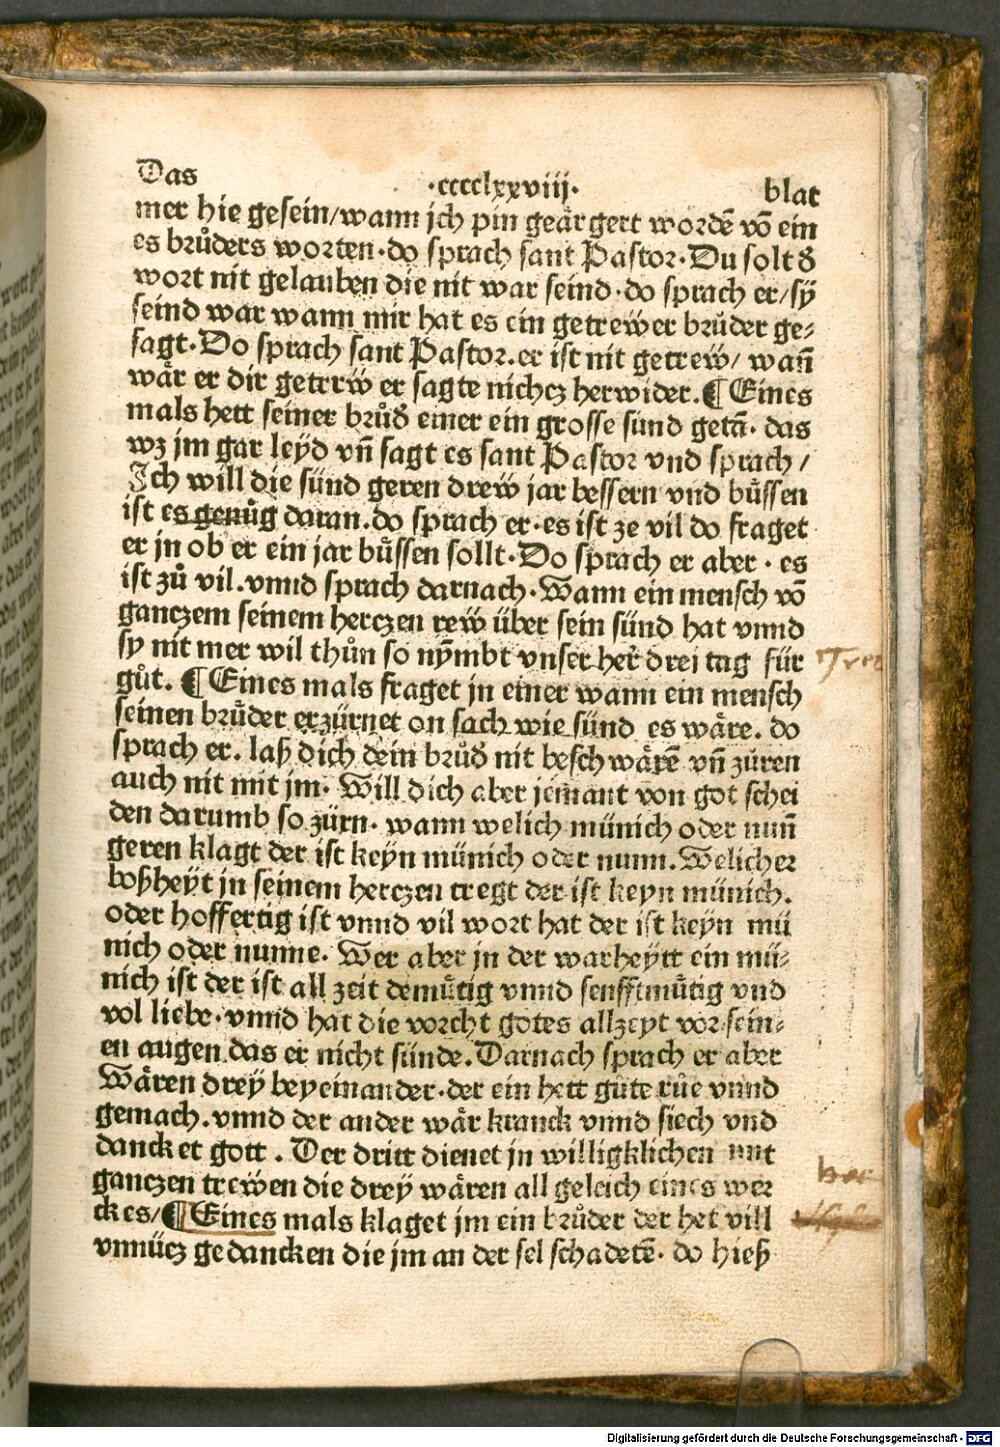 Das ·cccclxxviij· blat
mer hie gesein/wann jch pin geårgert wordē vō ein
es brůders worten·do sprach sant Pastor·Du solt ď
wort nit gelauben die nit war seind·do sprach er/sÿ
seind war wann mir hat es ein getreẅer brůder ge⸗
sagt·Do sprach sant Pastor.er ist nit getreẅ/ wañ
wår er dir getrrẅ er sagte nichcz herwider.¶Eines
mals hett seiner brůď einer ein grosse sund getā· das
wz jm gar leÿd vñ sagt es sant Pastor vnd sprach/
Ich will die sünd geren dreẅ jar bessern vnd bůssen
ist es genůg daran.do sprach er·es ist ze vil do fraget
er jn ob er ein jar bůssen sollt·Do sprach er aber· es
ist zů vil.vnnd sprach darnach·Wann ein mensch vō
ganczem seinem herczen reẅ über sein sünd hat vnnd
sy nit mer wil thůn so nÿmbt vnser her drei tag für
gůt. ¶Eines mals fraget jn einer wann ein mensch
seinen brůder erzürnet on sach wie sünd es wåre. do
sprach er. laß dich dein brůď nit beschwårē vñ züren
auch nit mit jm· Will dich aber jemant von got schei
den darumb so zürn· wann welich münich oder nunñ
geren klagt der ist keÿn münich oder nunn.Welicher
boßheÿt jn seinem herczen tregt der ist keyn münich.
oder hoffertig ist vnnd vil wort hat der ist keÿn mü
nich oder nunne. Wer aber jn der warheÿtt ein mü⸗
nich ist der ist all zeit demůtig vnnd senfftmůtig vnd
vol liebe·vnnd hat die vorcht gotes allzeyt vor sein⸗
en augen das er nicht sünde.Darnach sprach er aber
Wåren dreÿ beyeinander·der ein hett gůte růe vnnd
gemach.vnnd der ander wår kranck vnnd siech vnd
dancket gott . Der dritt dienet jn willigklichen mit
ganczen treẅen die dreÿ wåren all geleich eines wer
ckes/¶Eines mals klaget jm ein brůder der het vill
vnnücz gedancken die jm an der sel schadetē· do hieß
Digitalisierung gefördert durch die Deutsche Forschungsgemeinschaft - DFG